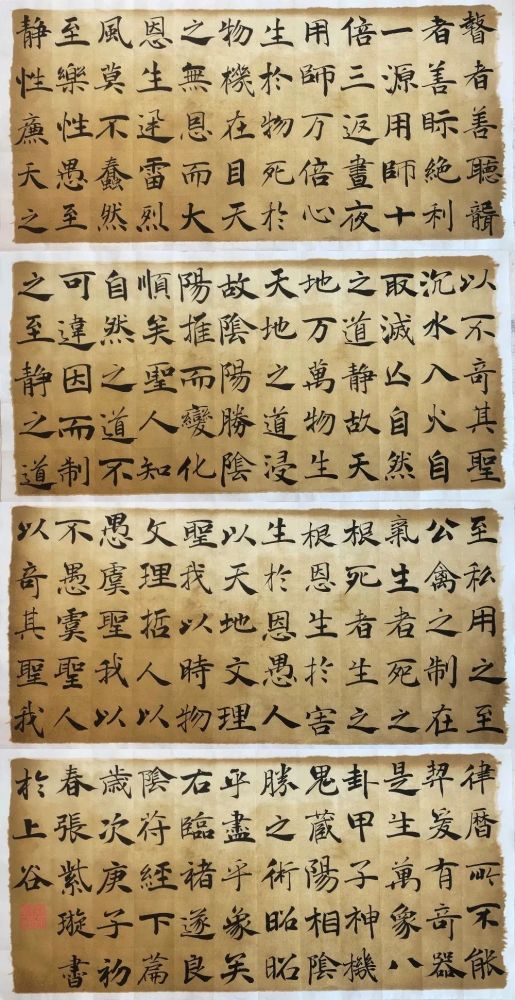 瞽者善聽聾
者善眎絶利
一源用師十
倍三返晝夜
用師万倍心
生於物死於
物機在目天
之無恩而大
恩生迅雷烈
風莫不蠢然
至樂性愚至
静性廉天之
以不奇其聖
沉水入火自
取滅亾自然
之道静故天
地万萬物生
天地之道浸
故陰陽勝陰
陽推而變化
順矣聖人知
自然之道不
可違因而制
之至静之道
至私用之至
公禽之制在
氣生者死之
根死者生之
根恩生於害
生於恩愚人
以天地文理
聖我以時物
文理哲人以
愚虞聖我以
不愚虞聖人
以奇其聖我
律曆所不能
契爰有奇器
是生萬象八
卦甲子神機
鬼蔵陽相陰
勝之術昭昭
乎盡乎象矣
右臨褚遂良
陰符經下篇
歲次庚子初
春張紫璇書
於上谷